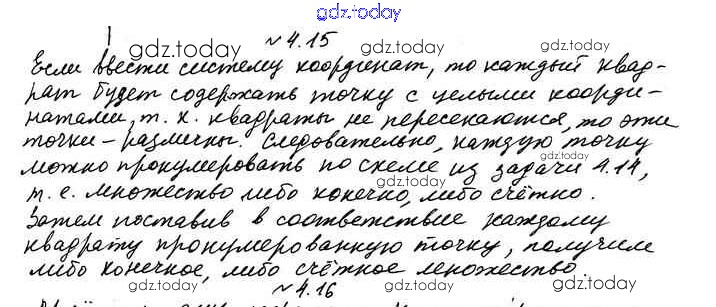 gdz.today
№ 4.15
gdz.today gdz.today gdz.today
Если ввести систему координат, то каждый квад-
рат будет содержать точку с целыми коорди-
gdz.today gdz.today
натами, т. к. квадраты не пересекаются, то эти
точки – различны. Следовательно, каждую точку
gdz.today gdz.today
можно пронумеровать по схеме из задачи 4.14,
gdz.today
т. е. множество либо конечно, либо счётно.
Затем поставив в соответствие каждому
gdz.today gdz.today
квадрату пронумерованную точку, получим
либо конечное, либо счётное множество.
gdz.today
№ 4.16